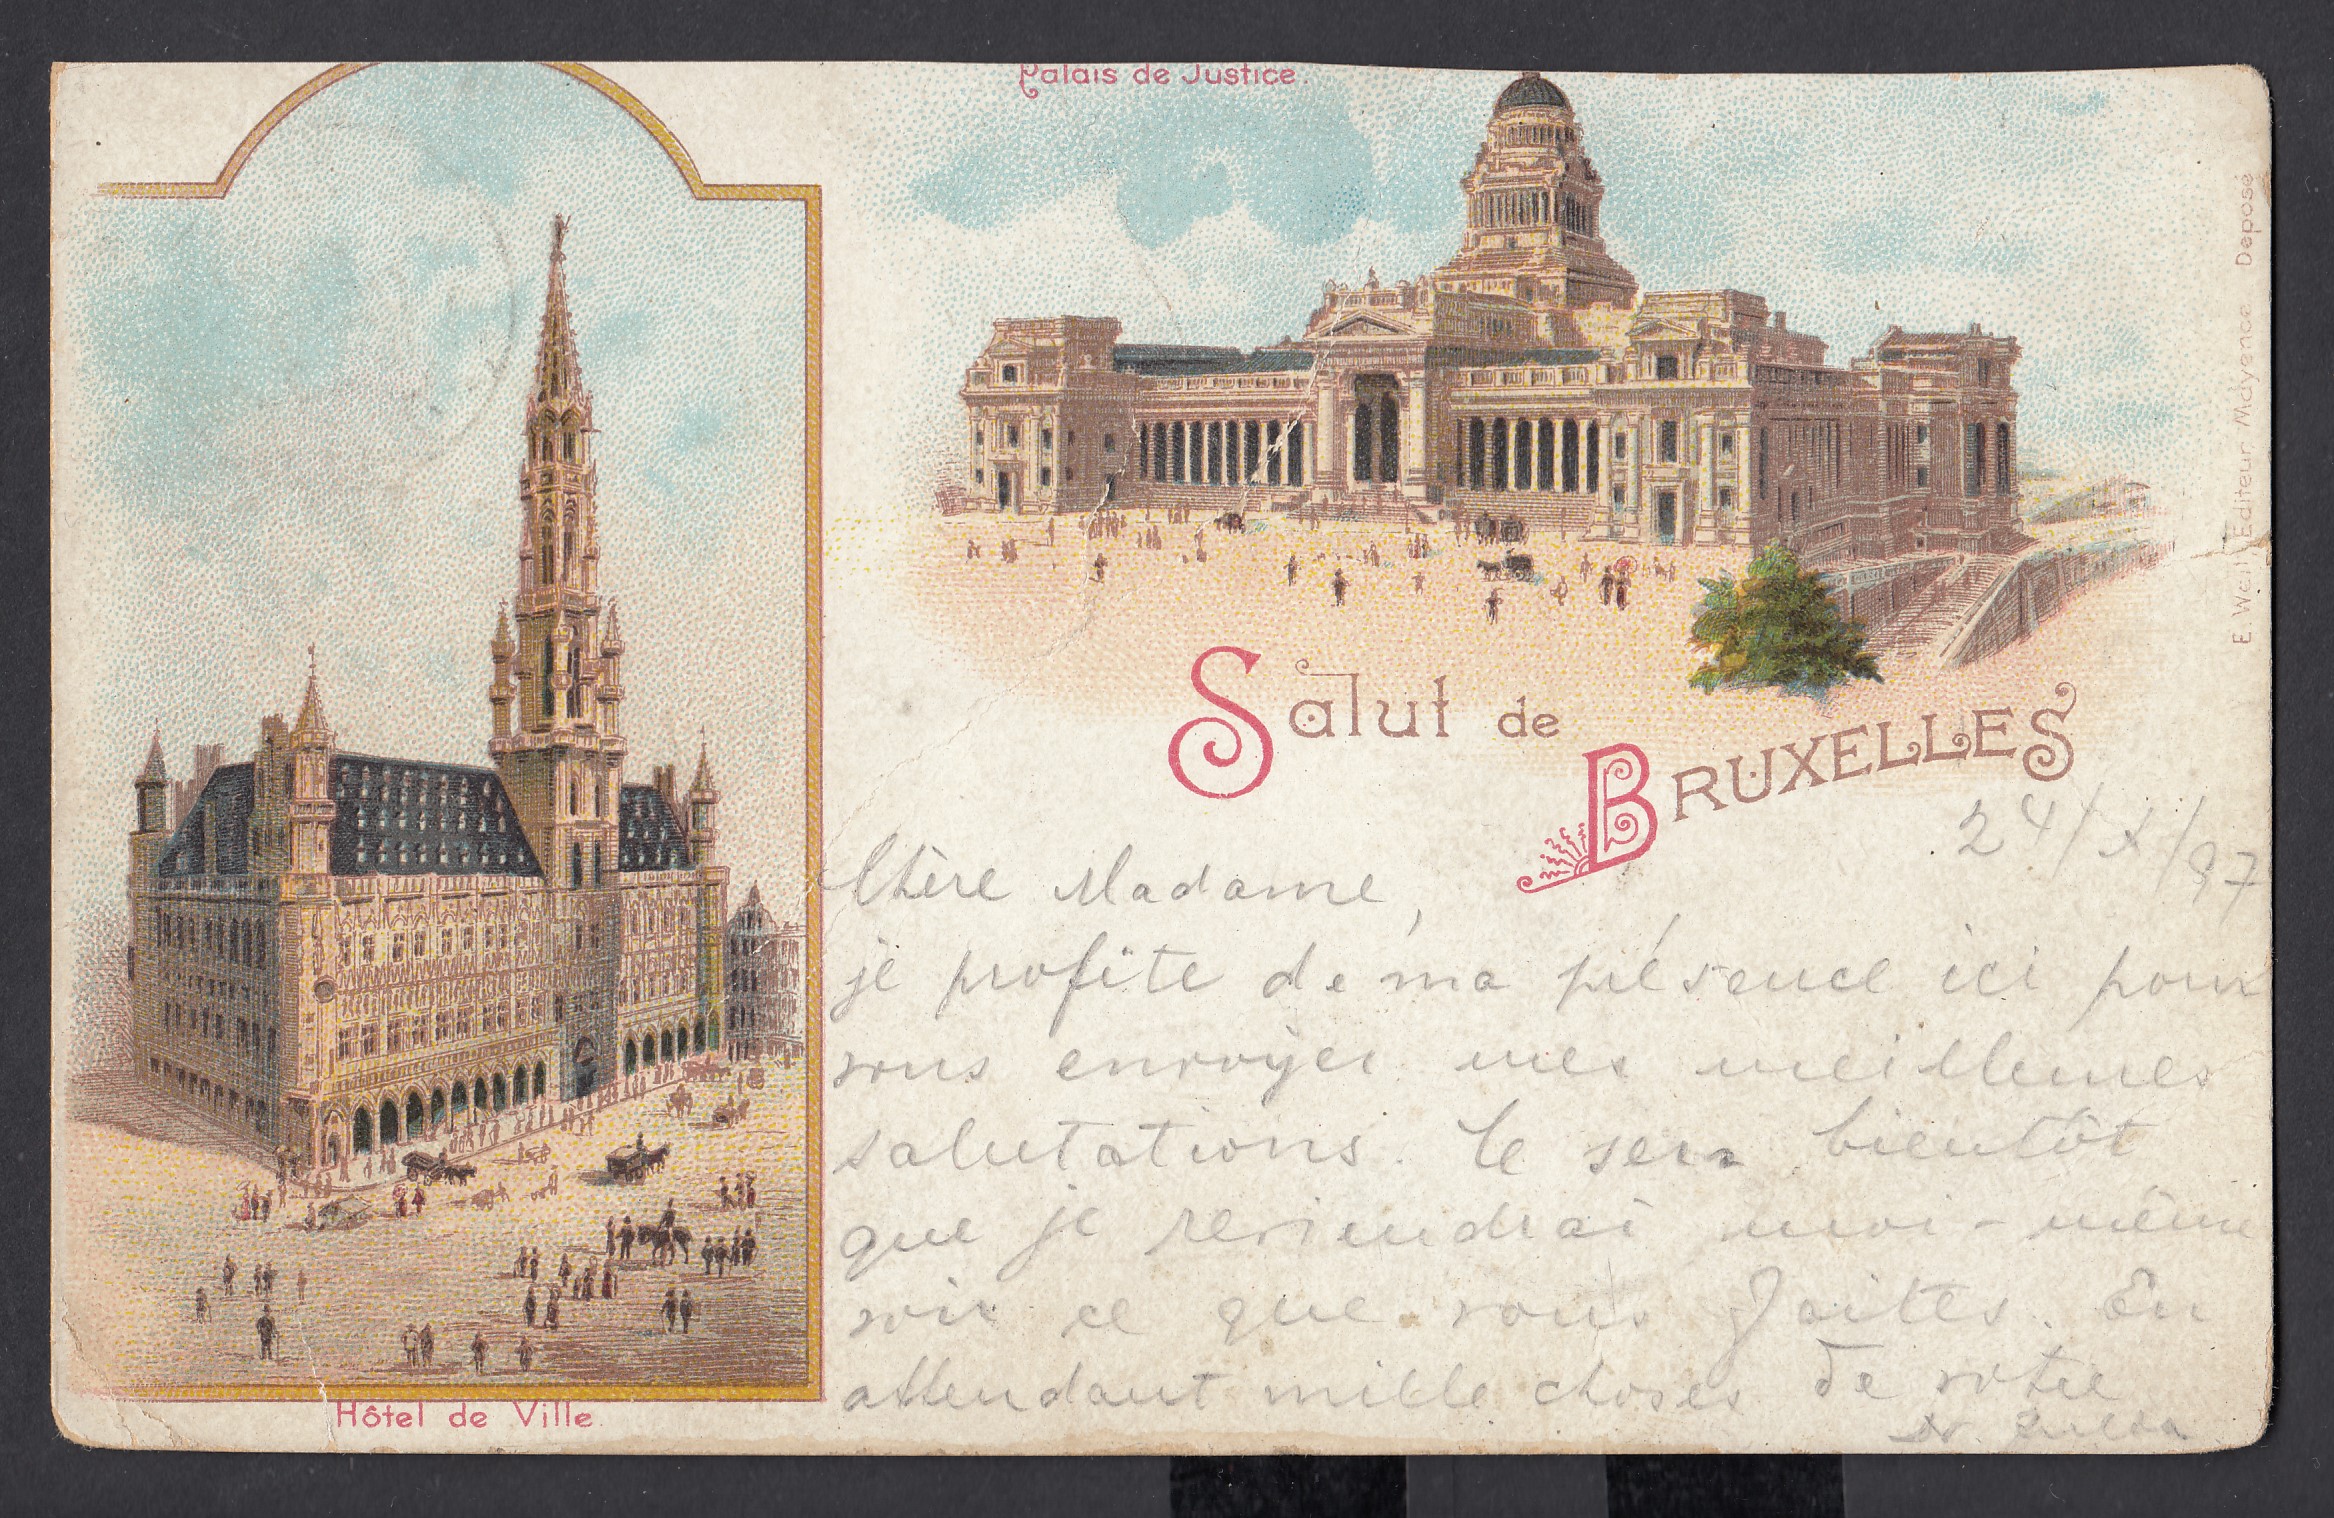 Palais de Justice.
E. Weill, Editeur Mayence Déposé
Salut de
BRUXELLES
24/X/97
Chère Madame,
je profite de ma présence ici pour
vous envoyer mes meilleures
salutations. Ce sera bientôt
que je reviendrai moi-même
voir ce que vous faites. En
attendant mille choses de votre
Dr.
Hôtel de Ville.